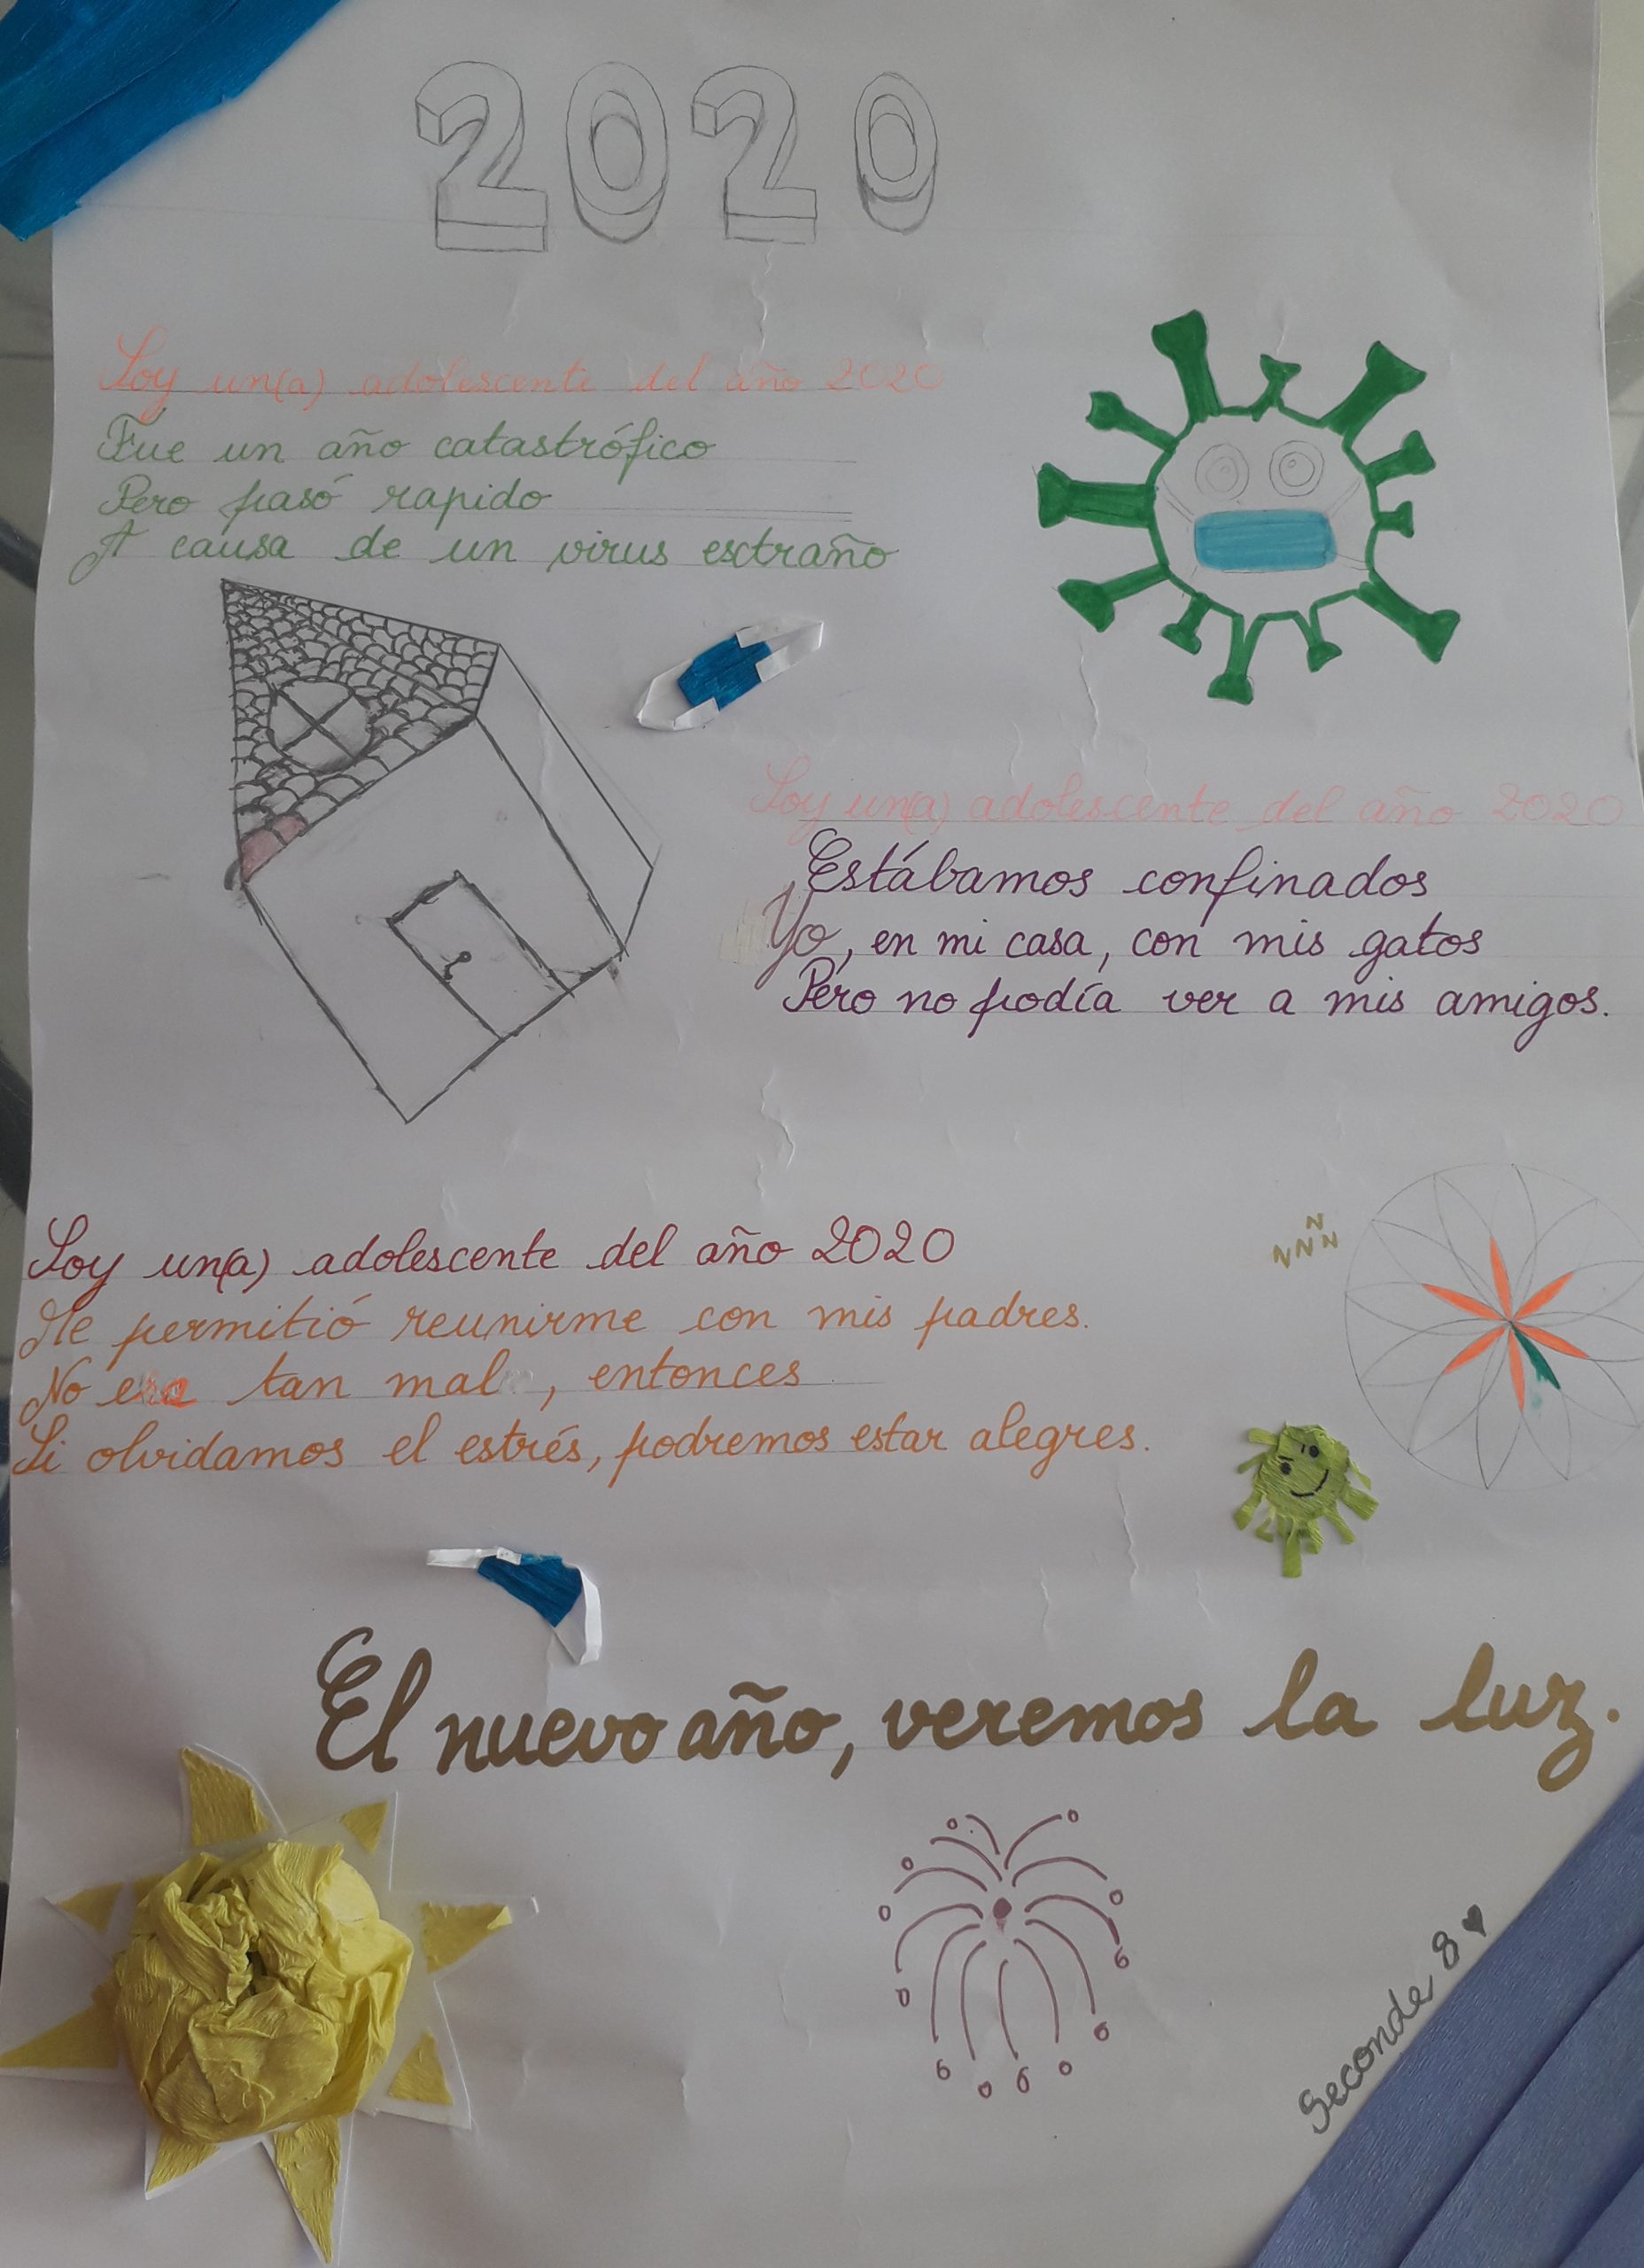 2020
Soy un(a) adolescente del año 2020
Fue un año catastrófico
Pero pasó rapido
A causa de un virus extraño
Soy un(a) adolescente del año 2020
Estábamos confinados
Yo, en mi casa, con mis gatos
Pero no podía ver a mis amigos.
N
N N N
Soy un(a) adolescente del año 2020
Me permitió reunirme con mis padres.
No era tan mal, entonces
Si olvidamos el estrés, podremos estar alegres.
El nuevo año, veremos la luz.
Seconde 8 ♥